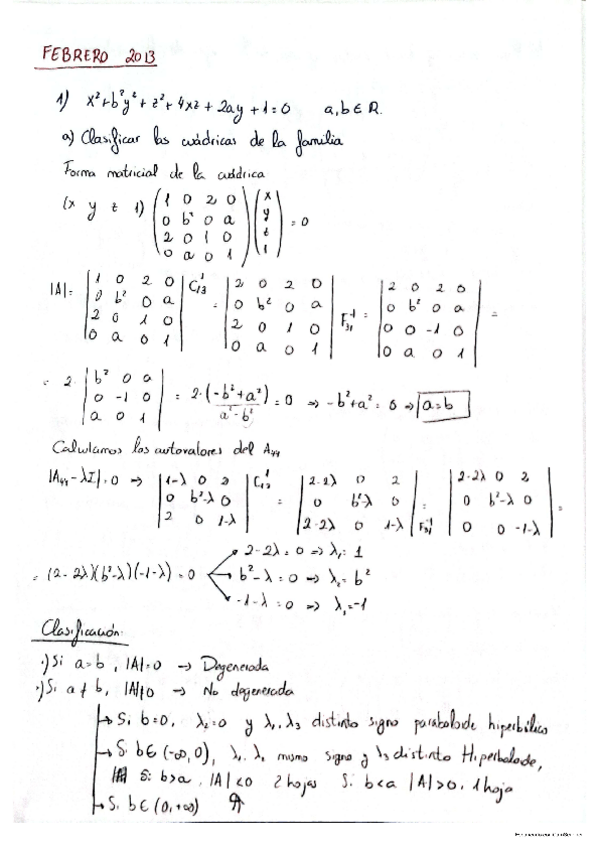 FEBRERO 2013
1) x²+b²y²+z²+4xz+2ay+1=0 a,b∈R.
a) Clasificar las cuádricas de la familia
Forma matricial de la cuádrica
(x y z 1) (1 0 2 0 / 0 b² 0 a / 2 0 1 0 / 0 a 0 1) (x / y / z / 1) = 0
|A| = |1 0 2 0 / 0 b² 0 a / 2 0 1 0 / 0 a 0 1| C₁₃¹ = |2 0 2 0 / 0 b² 0 a / 2 0 1 0 / 0 a 0 1| F₃₁⁻¹ = |2 0 2 0 / 0 b² 0 a / 0 0 -1 0 / 0 a 0 1| =
= 2· |b² 0 a / 0 -1 0 / a 0 1| = 2·(-b²+a²) = 0 ⇒ -b²+a² = 0 ⇒ a=b
a²-b²
Calculamos los autovalores del A₄₄
|A₄₄-λI|=0 ⇒ |1-λ 0 2 / 0 b²-λ 0 / 2 0 1-λ| C₁₃¹ = |2-2λ 0 2 / 0 b²-λ 0 / 2-2λ 0 1-λ| F₃₁⁻¹ = |2-2λ 0 2 / 0 b²-λ 0 / 0 0 -1-λ| =
2-2λ=0 ⇒ λ₁=1
= (2-2λ)(b²-λ)(-1-λ)=0 b²-λ=0 ⇒ λ₂=b²
-1-λ=0 ⇒ λ₃=-1
Clasificación:
·) Si a=b, |A|=0 → Degenerada
·) Si a≠b, |A|≠0 → No degenerada
→ Si b=0, λ₂=0 y λ₁,λ₃ distinto signo paraboloide hiperbólico
→ Si b∈(-∞,0), λ₁,λ₂ mismo signo y λ₃ distinto Hiperboloide,
Si b>a, |A|<0 2 hojas Si b<a |A|>0, 1 hoja
→ Si b∈(0,+∞)